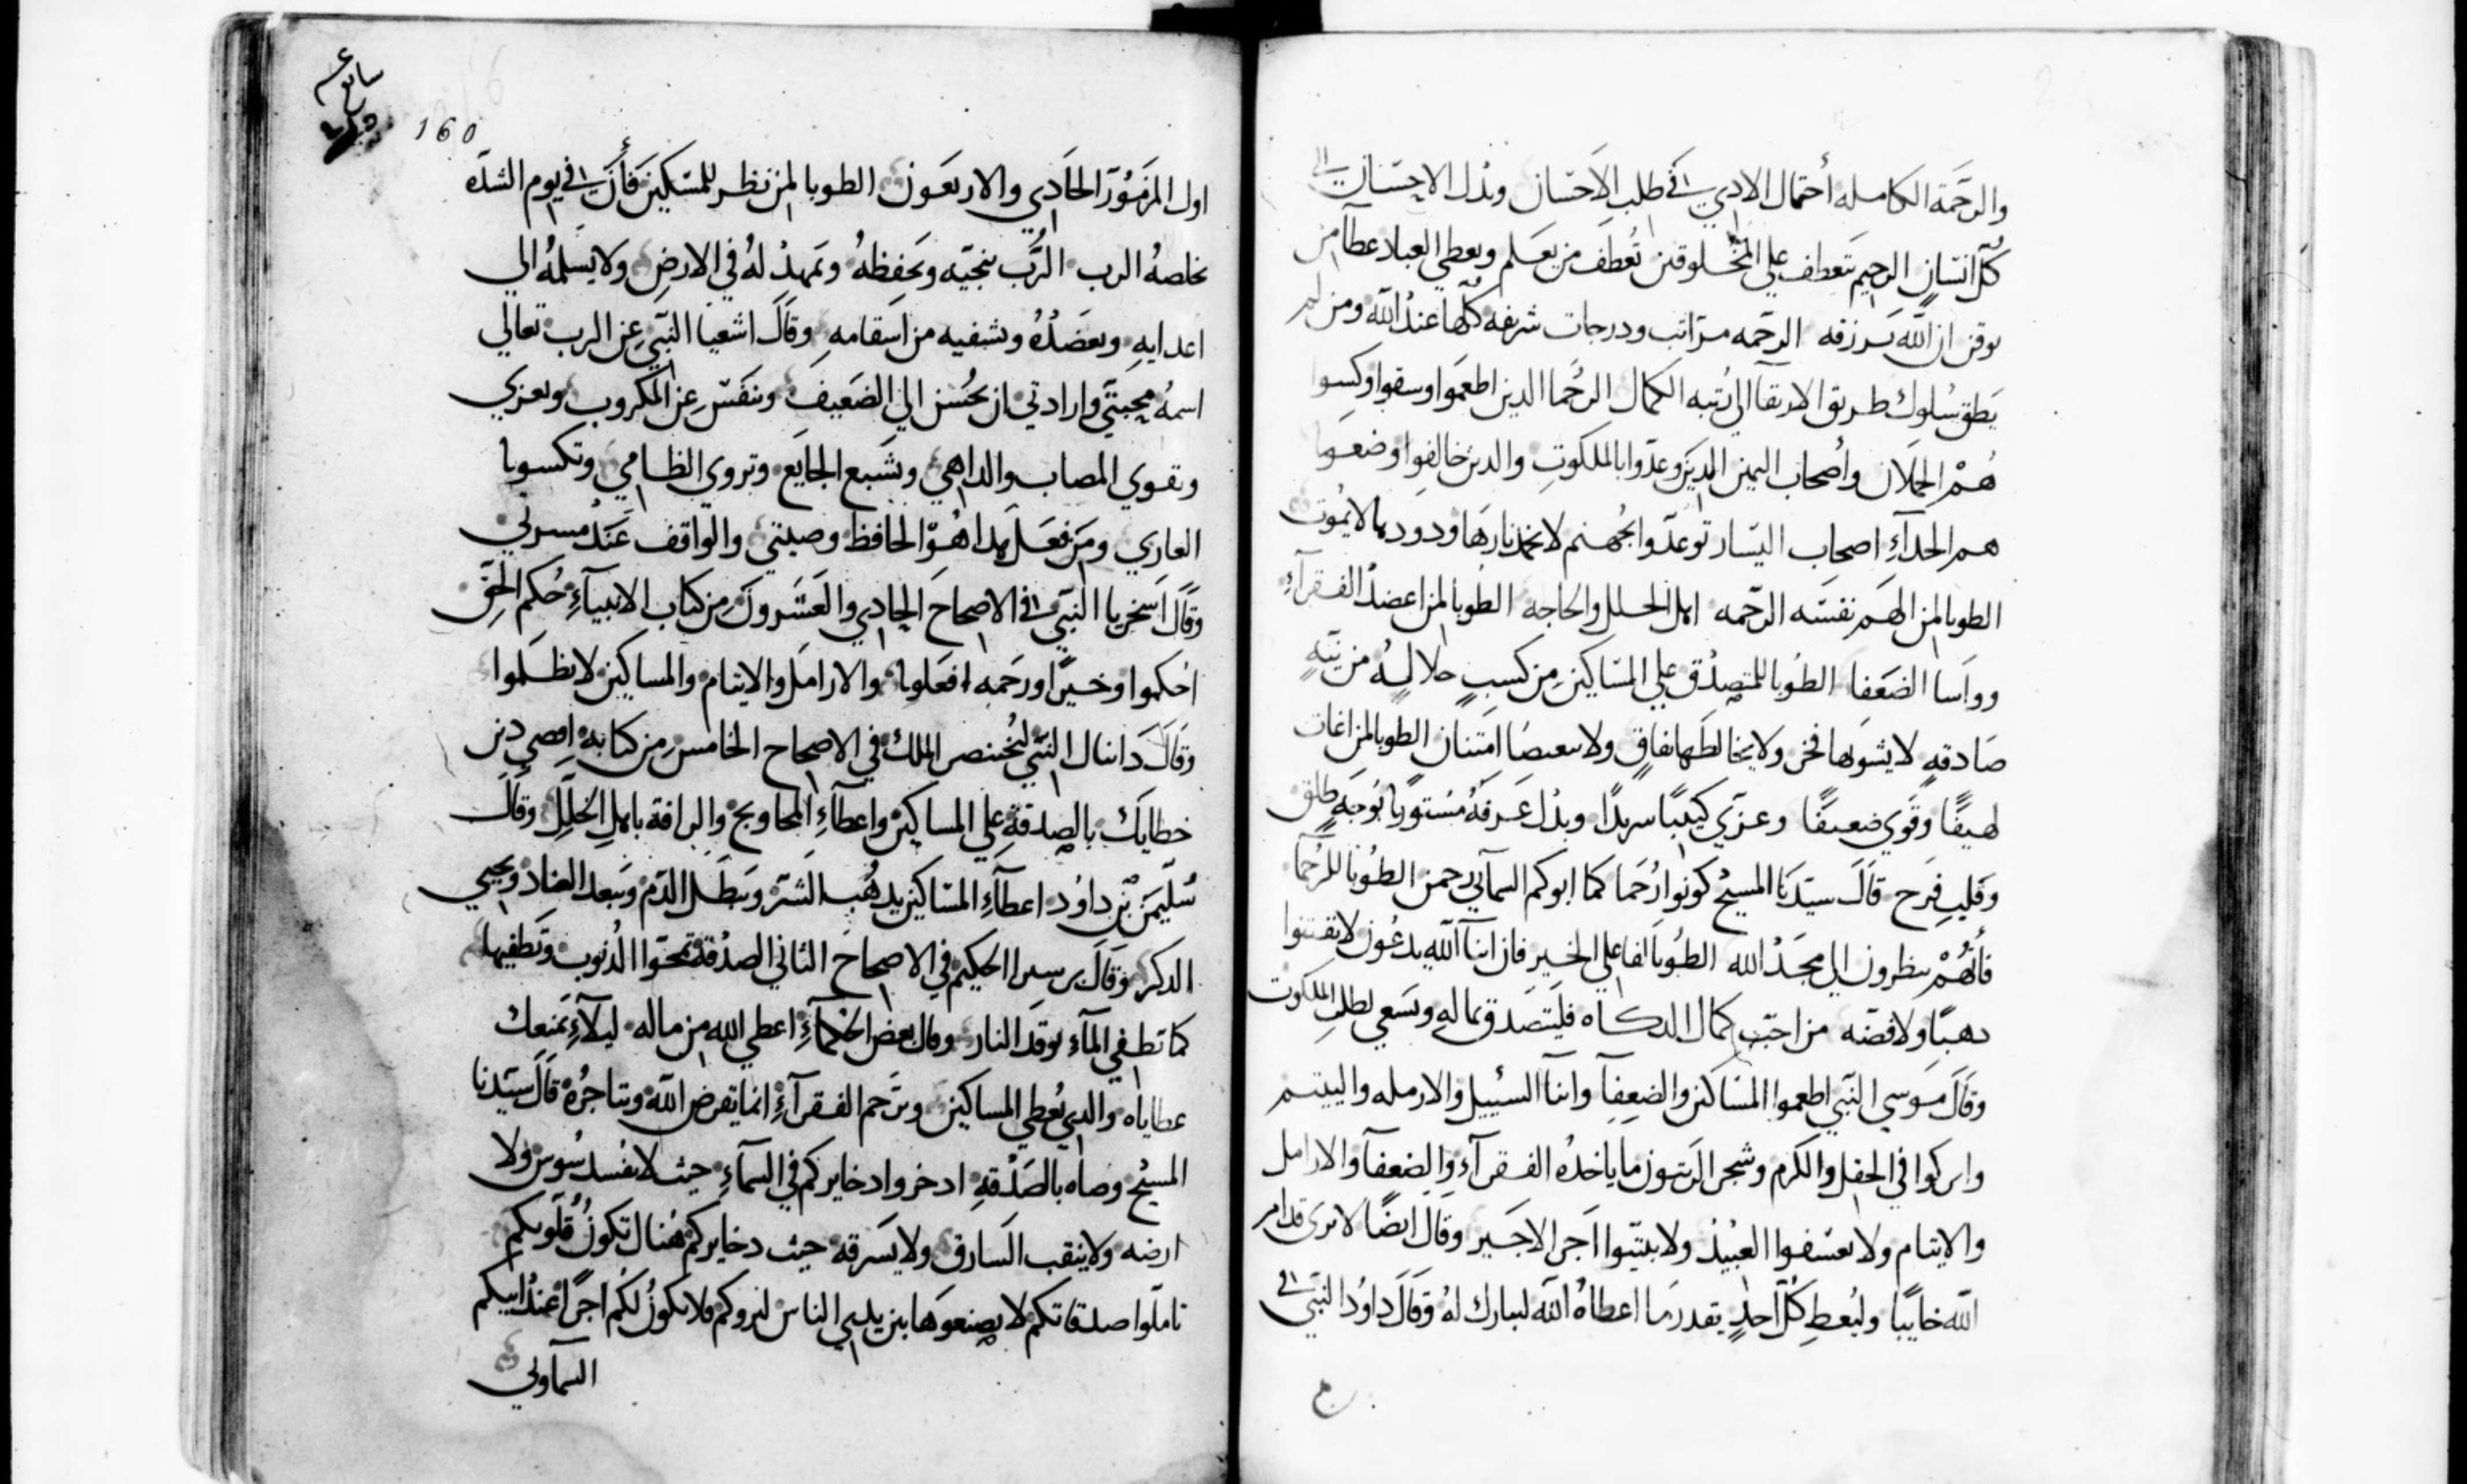 والرحمة الكامله أحتمال الادي في طلب الاحسان وبدل الاحسان الي
كل انسان الرحيم يتعطف علي المخلوقين تعطف من يعلم ويعطي العباد عطآ من
يوقن ان الله يرزقه الرحمه مراتب ودرجات شريفه كلها عند الله ومن لم
يطق سلوك طريق الارتقآ الي رتبه الكمال الرحما الدين اطعموا وسقوا وكسوا
هم الحملان وأصحاب اليمين الدين وعدوا بالملكوت والدين خالفوا وضعوا
هم الجدآء اصحاب اليسار توعدوا بجهنم لا تخمد نارها ودودها لا يموت
الطوبا لمن الهم نفسه الرحمه اهل الخلل والحاجه الطوبا لمن اعضد الفقرآء
وواسا الضعفا الطوبا للمتصدق علي المساكين من كسب حلال له من نية
صادقه لا يشوبها فخر ولا يخالطها نفاق ولا امتنان الطوبا لمن اغات
لهيفًا وقوي ضعيفًا وعزي كييبًا وبدل عرفه مستورا بوجه طلق
وقلب فرح قال سيدنا المسيح كونوا رحما كما ابوكم السمآيي رحمن الطوبا للرحمآ
فأنهم ينظرون الي مجد الله الطوبا لفاعلي الخير فان ابنآ الله يدعون لا تقتنوا
دهبًا ولا فضه من احب كمال الدكاه فليتصدق بماله ويسعي لطلب الملكوت
وقال موسي النبي اطعموا المساكين والضعفآ وابنآ السبيل والارمله واليتيم
واتركوا في الحقل والكرم وشجر الزيتون ما ياخده الفقرآء والضعفآ والارامل
والايتام ولا تعسفوا العبيد ولا يبيتوا اجر الاجير وقال ايضًا لا ترى قدام
الله خايبًا وليعط كل احدٍ بقدر ما اعطاه الله ليبارك له وقال داود النبي في
160
اول المزمور الحادي والاربعون الطوبا لمن نظر للمسكين فأن في يوم الشده
يخلصه الرب الرب ينجيه ويحفظه ويمهد له في الارض ولا يسلمه الي
اعدايه ويعضده ويشفيه من اسقامه وقال اشعيا النبي عن الرب تعالي
اسمه محبتي وارادتي ان يحسن الي الضعيف وينفس عن المكروب ويعزي
ويقوي المصاب والداهي ويشبع الجايع ويروي الظامي ويكسوا
العاري ومن فعل هدا هو الحافظ وصيتي والواقف عند مسرتي
وقال زخريا النبي في الاصحاح الحادي والعشرون من كتاب الانبيآء حكم الحق
احكموا وخيرًا ورحمه افعلوا والارامل والايتام والمساكين لا تظلموا
وقال دانيال النبي لبختنصر الملك في الاصحاح الخامس من كتابه اقصي دين
خطاياك بالصدقة علي المساكين واعطآء المحاويج والرافة باهل الخلل وقال
سليمن بن داود اعطآء المساكين يدهب الشر ويبطل الدم ويبعد العناد ويحيي
الدكر وقال برسيرا الحكيم في الاصحاح الثاني الصدقة تمحوا الدنوب وتطفيها
كما تطفي المآء توقد النار وقال بعض الحكمآء اعطي الله من ماله ليلآء يمنعك
عطاياه والدي يعطي المساكين ويرحم الفقرآء انما يقرض الله ويتاجره قال سيدنا
المسيح وصاه بالصدقة ادخروا دخايركم في السمآء حيث لا يفسد سوس ولا
ارضه ولا ينقب السارق ولا يسرقه حيث دخايركم هناك تكون قلوبكم
تاملوا صدقاتكم لا تصنعوها بين يدي الناس ليروكم فلا يكون لكم اجرًا عند ابيكم
السمآولي